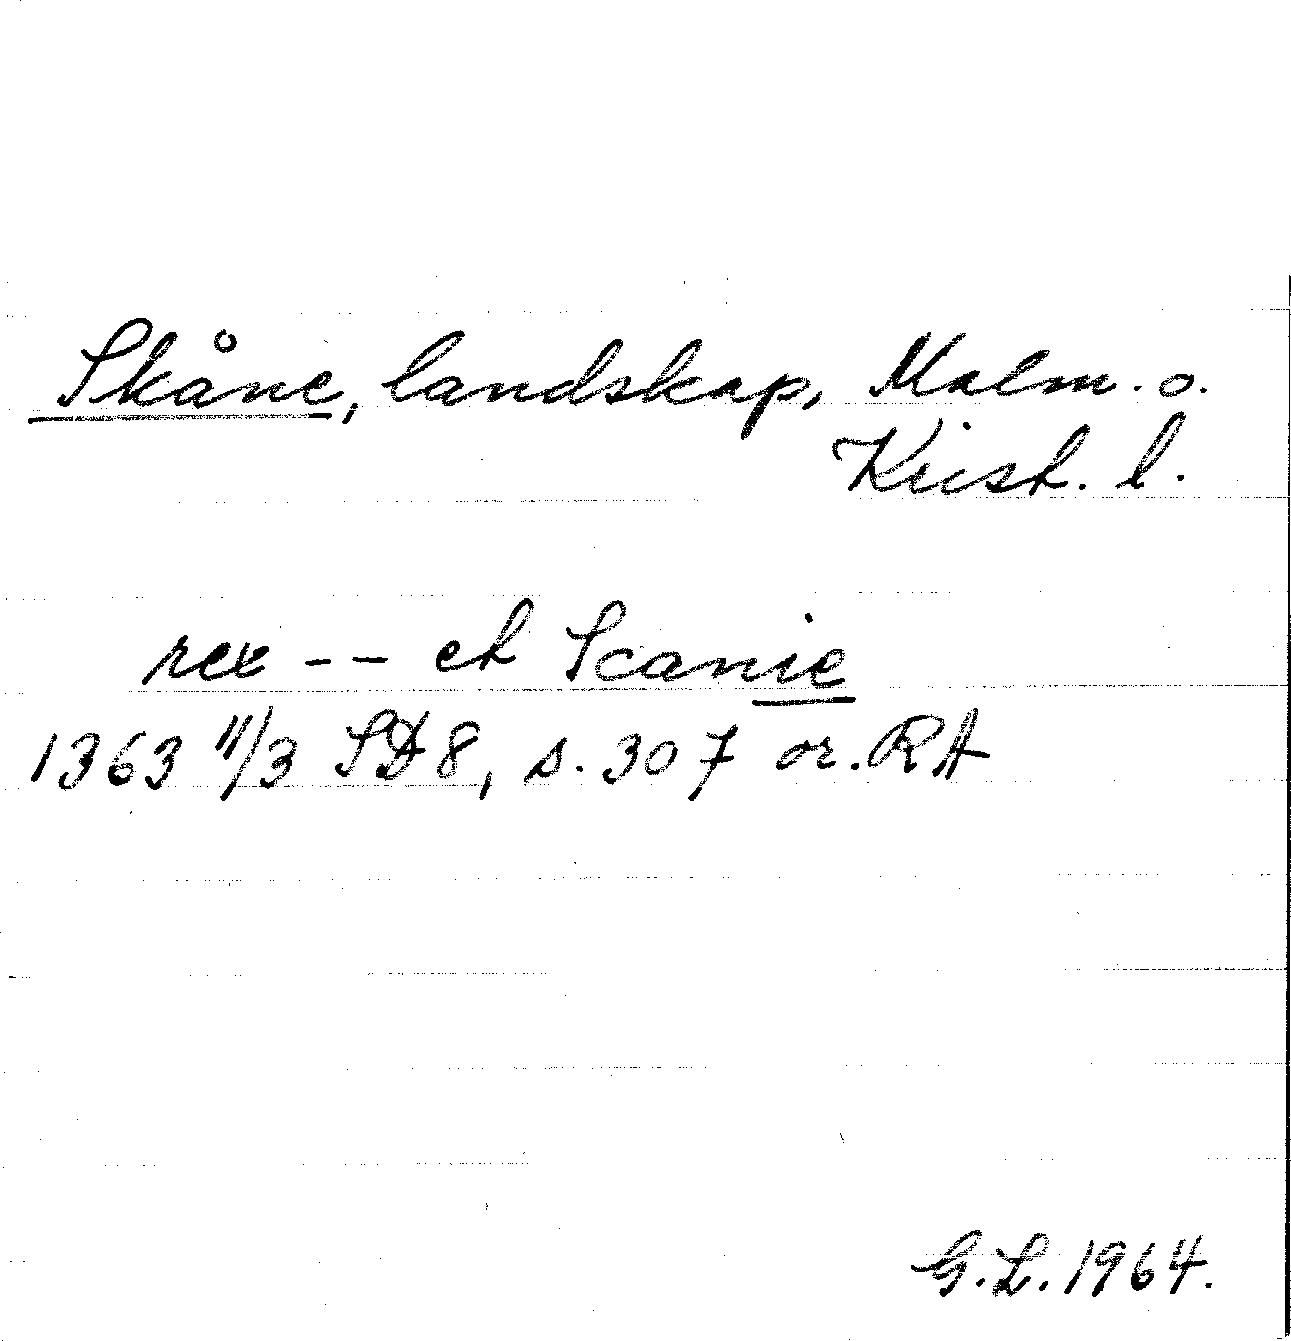 Skåne, landskap, Malm. o.
Krist. l.
rex -- et Scanie
1363 11/3 SD 8, s. 307 or. RA
G.L. 1964.